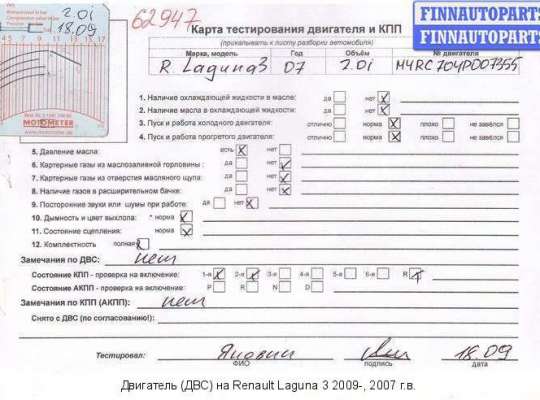 2.0i
18.09
3 5 7 9 11 13 15 17
MOTOMETER
62947
Карта тестирования двигателя и КПП
(прикалывать к листу разборки автомобиля)
FINNAUTOPARTS
FINNAUTOPARTS
Марка, модель Год Объём № двигателя
R. Laguna 3 07 2.0i M4RC704P007355
1. Наличие охлаждающей жидкости в масле: да нет
2. Наличие масла в охлаждающей жидкости: да нет
3. Пуск и работа холодного двигателя: отлично норма плохо не завёлся
4. Пуск и работа прогретого двигателя: отлично норма плохо не завёлся
5. Давление масла: есть нет
6. Картерные газы из маслозаливной горловины: да нет
7. Картерные газы из отверстия масляного щупа: да нет
8. Наличие газов в расширительном бачке: да нет
9. Посторонние звуки или шумы при работе: да нет
10. Дымность и цвет выхлопа: * норма
11. Состояние сцепления: норма
12. Комплектность полная
Замечания по ДВС: нет
Состояние КПП - проверка на включение: 1-я 2-я 3-я 4-я 5-я 6-я R
Состояние АКПП - проверка на включение: P R N D
Замечания по КПП (АКПП): нет
Снято с ДВС (по согласованию!):
Тестировал: 18.09
ФИО подпись дата
Двигатель (ДВС) на Renault Laguna 3 2009-, 2007 г.в.